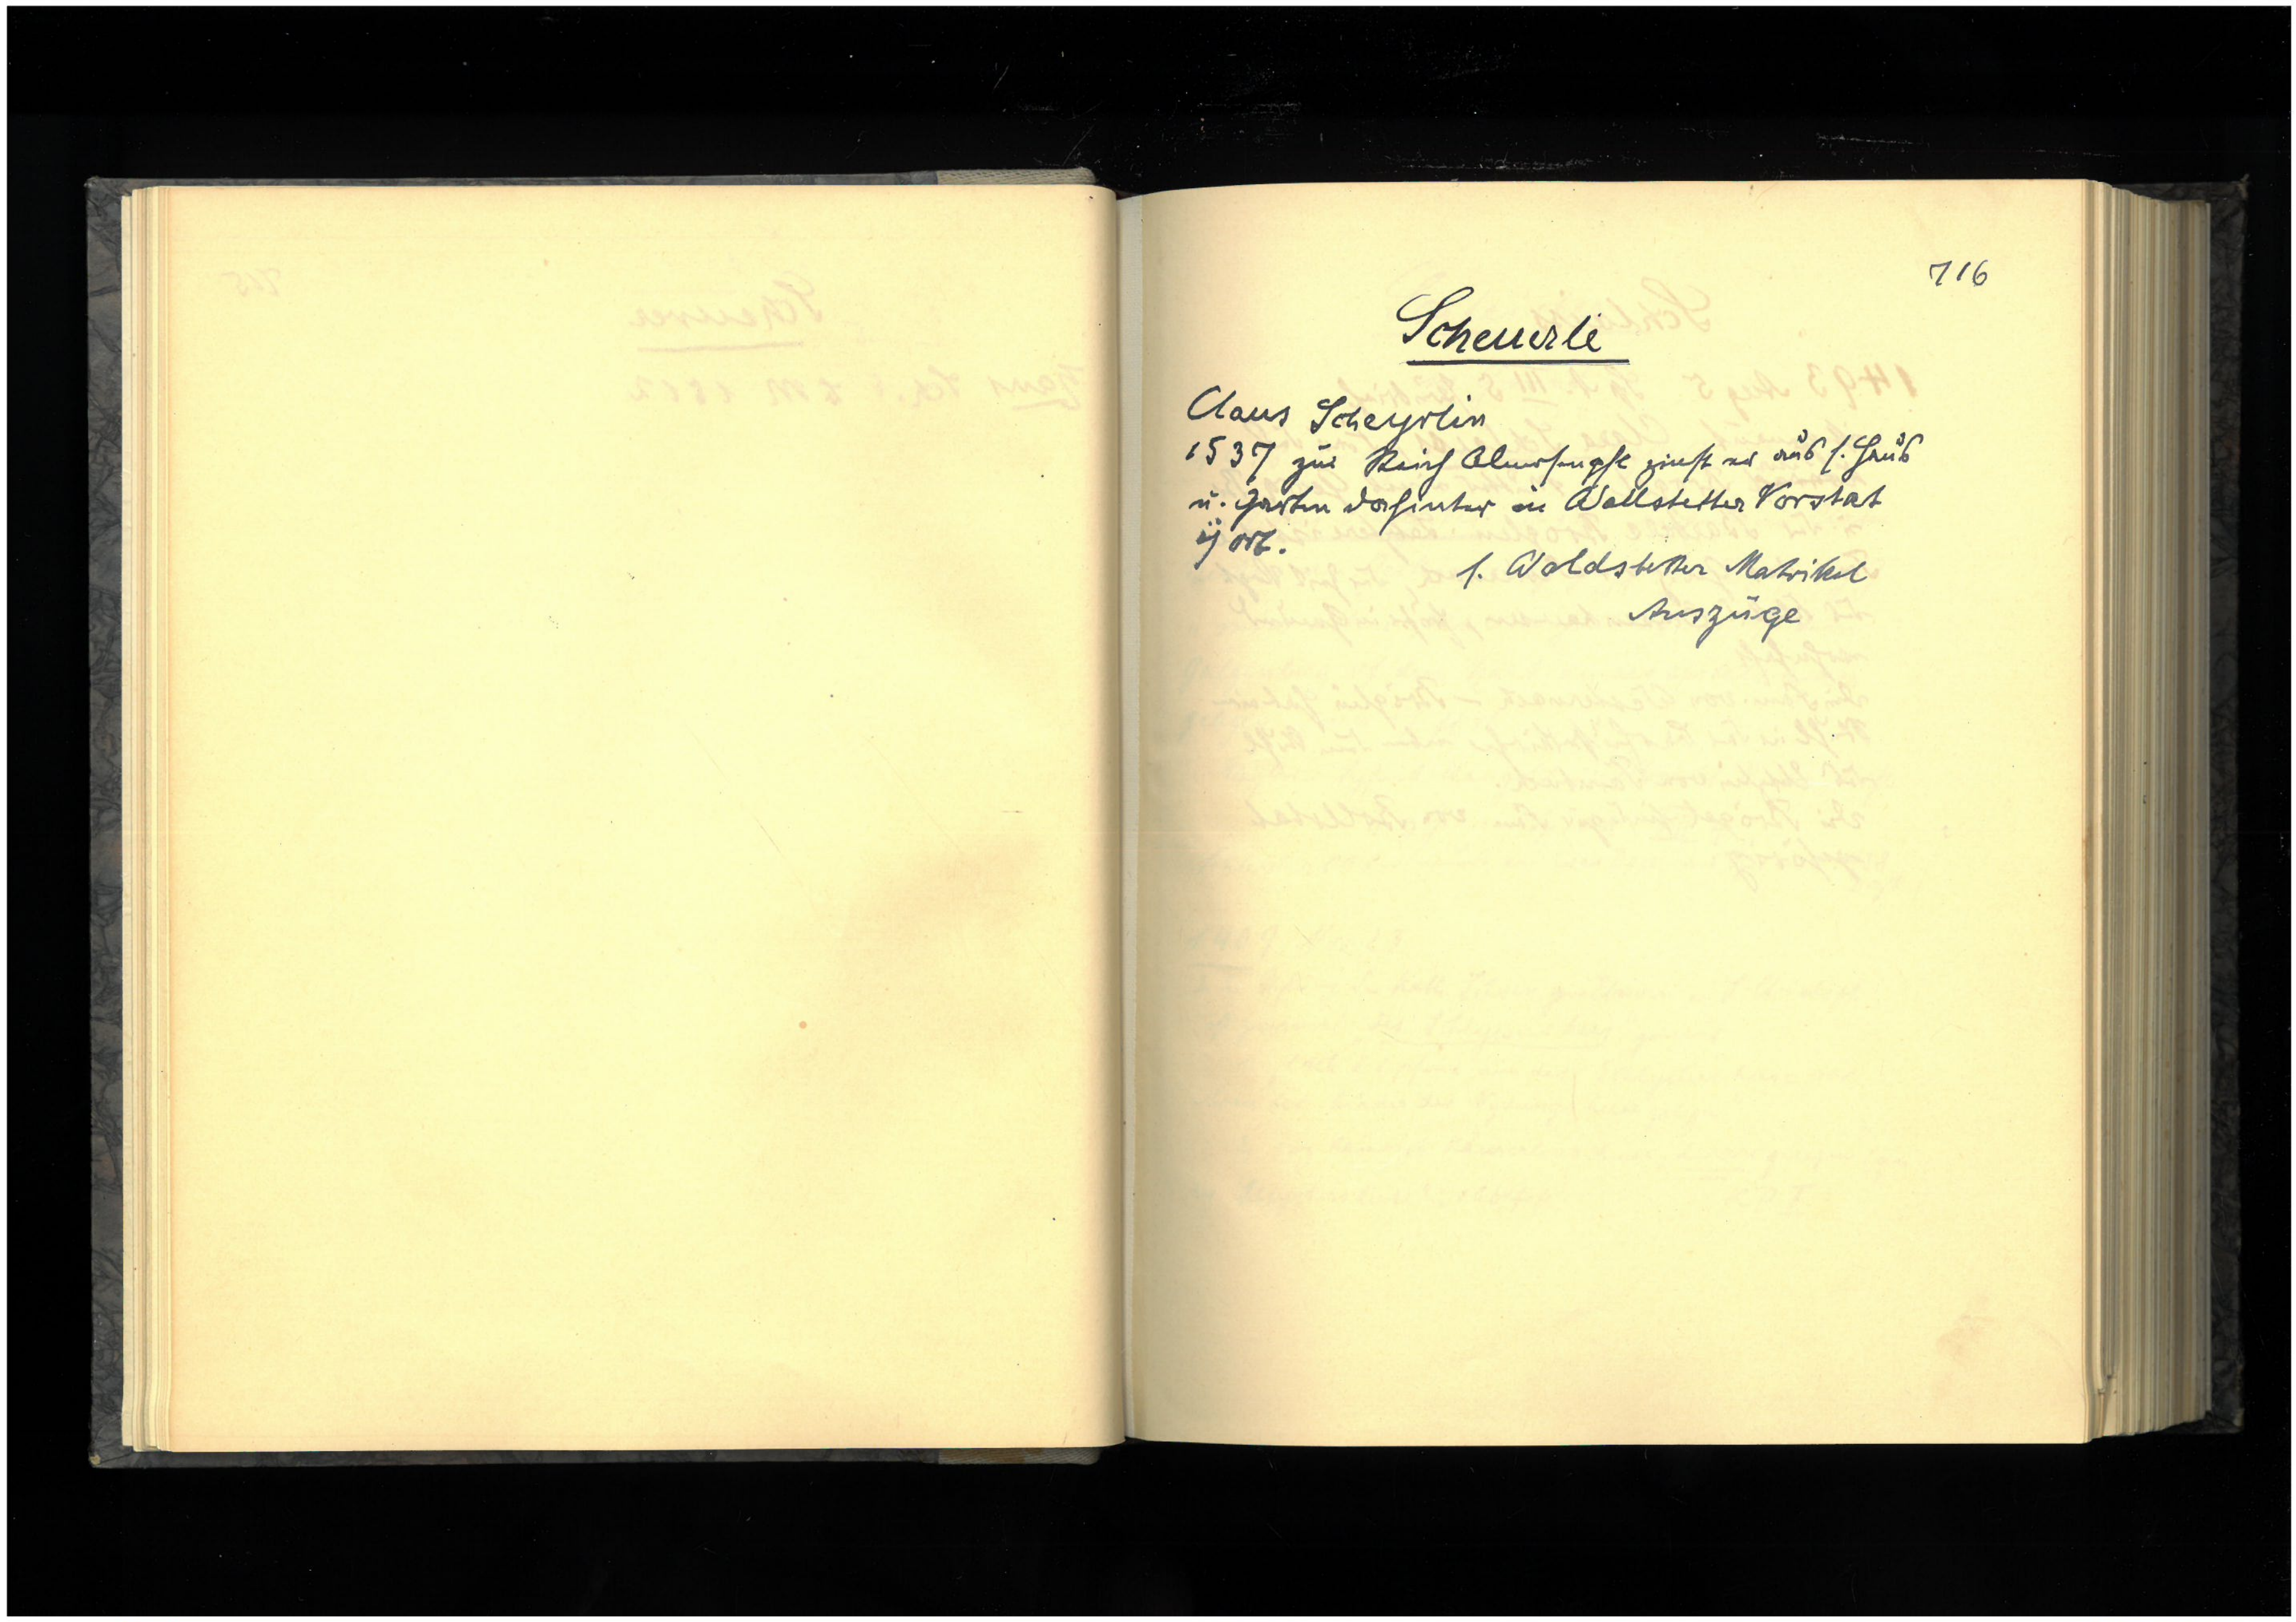 716
Scheuerle
Claus Scheyrlin
1537 zur Reich Almusenpfl zinst er aus s. Haus
u. Garten dahinter in Wallstetter Vorstat
ij ort.
s. Waldstetter Matrikel
Auszüge